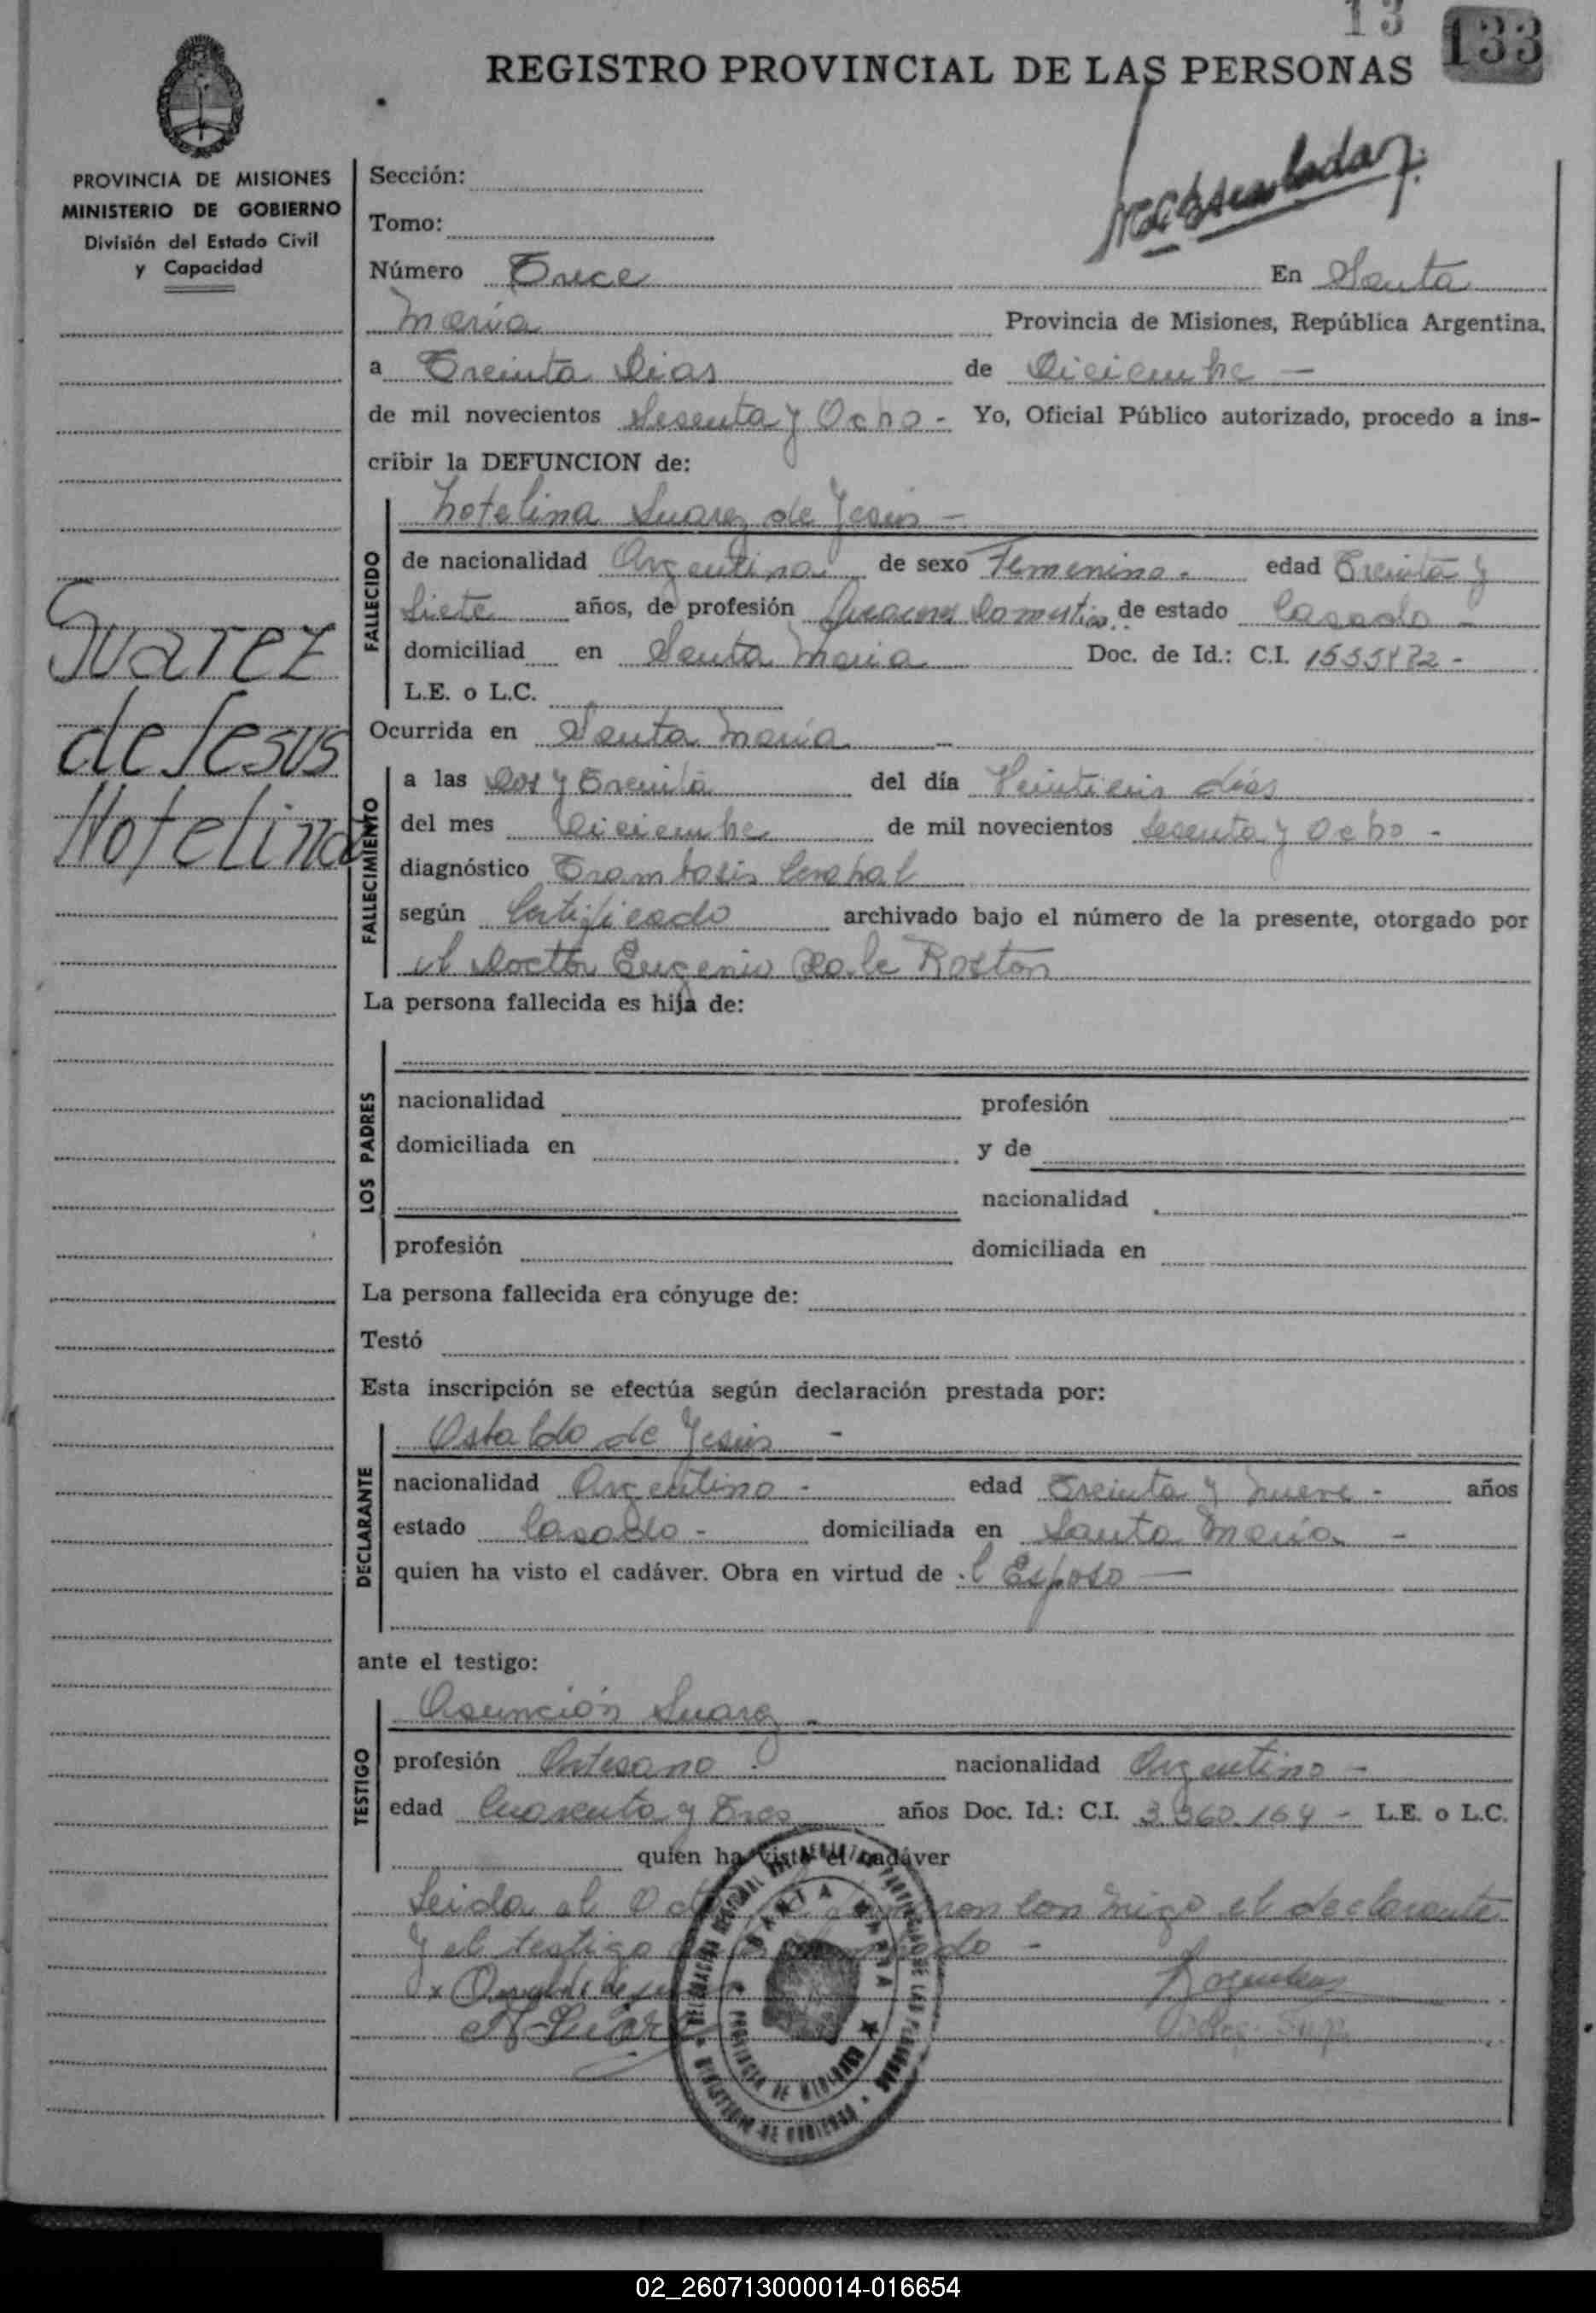 13 133
REGISTRO PROVINCIAL DE LAS PERSONAS
PROVINCIA DE MISIONES
MINISTERIO DE GOBIERNO
División del Estado Civil
y Capacidad
Suarez
de Jesus
Notelina
Sección:
Tomo:
Número Trece En Santa
María Provincia de Misiones, República Argentina.
a Treinta Dias de Diciembre —
de mil novecientos Sesenta y Ocho - Yo, Oficial Público autorizado, procedo a ins-
cribir la DEFUNCION de:
FALLECIDO
Notelina Suarez de Jesus —
de nacionalidad Argentina de sexo Femenino - edad Treinta y
Siete años, de profesión de estado Casado -
domiciliad en Santa Maria Doc. de Id.: C.I.
L.E. o L.C.
Ocurrida en Santa María
FALLECIMIENTO
a las Dos y Treinta del día días
del mes Diciembre de mil novecientos Sesenta y Ocho -
diagnóstico
según Certificado archivado bajo el número de la presente, otorgado por
el Doctor Eugenio
La persona fallecida es hija de:
LOS PADRES
nacionalidad profesión
domiciliada en y de
nacionalidad
profesión domiciliada en
La persona fallecida era cónyuge de:
Testó
Esta inscripción se efectúa según declaración prestada por:
DECLARANTE
de Jesus -
nacionalidad Argentino - edad Treinta y Nueve - años
estado Casado - domiciliada en Santa María -
quien ha visto el cadáver. Obra en virtud de .l Esposo —
ante el testigo:
TESTIGO
Asunción Suarez -
profesión Artesano - nacionalidad Argentino -
edad Cuarenta y Tres años Doc. Id.: C.I. 3.360.164 - L.E. o L.C.
quien ha visto el cadáver
Leida el con migo el declarante
y el testigo
SANTA MARIA
PROVINCIA DE MISIONES
MINISTERIO DE GOBIERNO
02_260713000014-016654